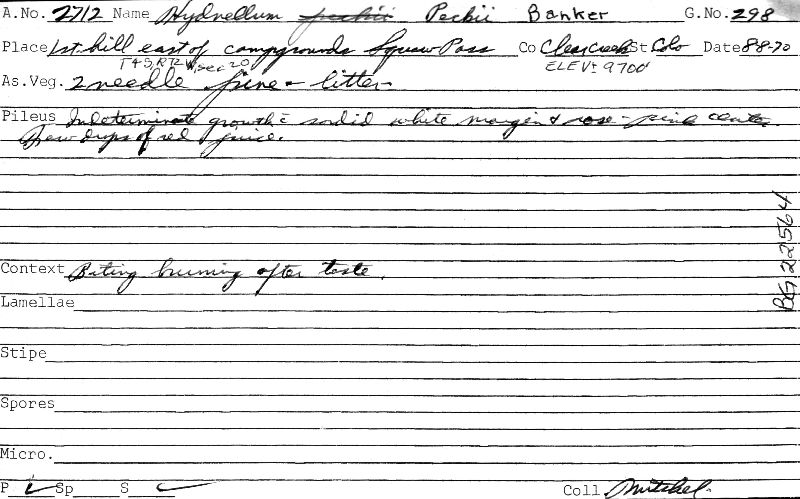 A.No. 2712 Name Hydnellum peckii Peckii Banker G.No. 298
Place 1st hill east of campgrounds Squaw Pass Co Clear creek St Colo Date 8-8-70
T4S, R72W, sec 20 ELEV: 9700'
As.Veg. 2 needle pine - litter
Pileus Indeterminate growth c̄ sordid white margin & rose-pink center
Few drops of red juice.
Context Biting burning after taste.
Lamellae
Stipe
Spores
Micro.
P Sp S Coll Mitchel
BG 22564